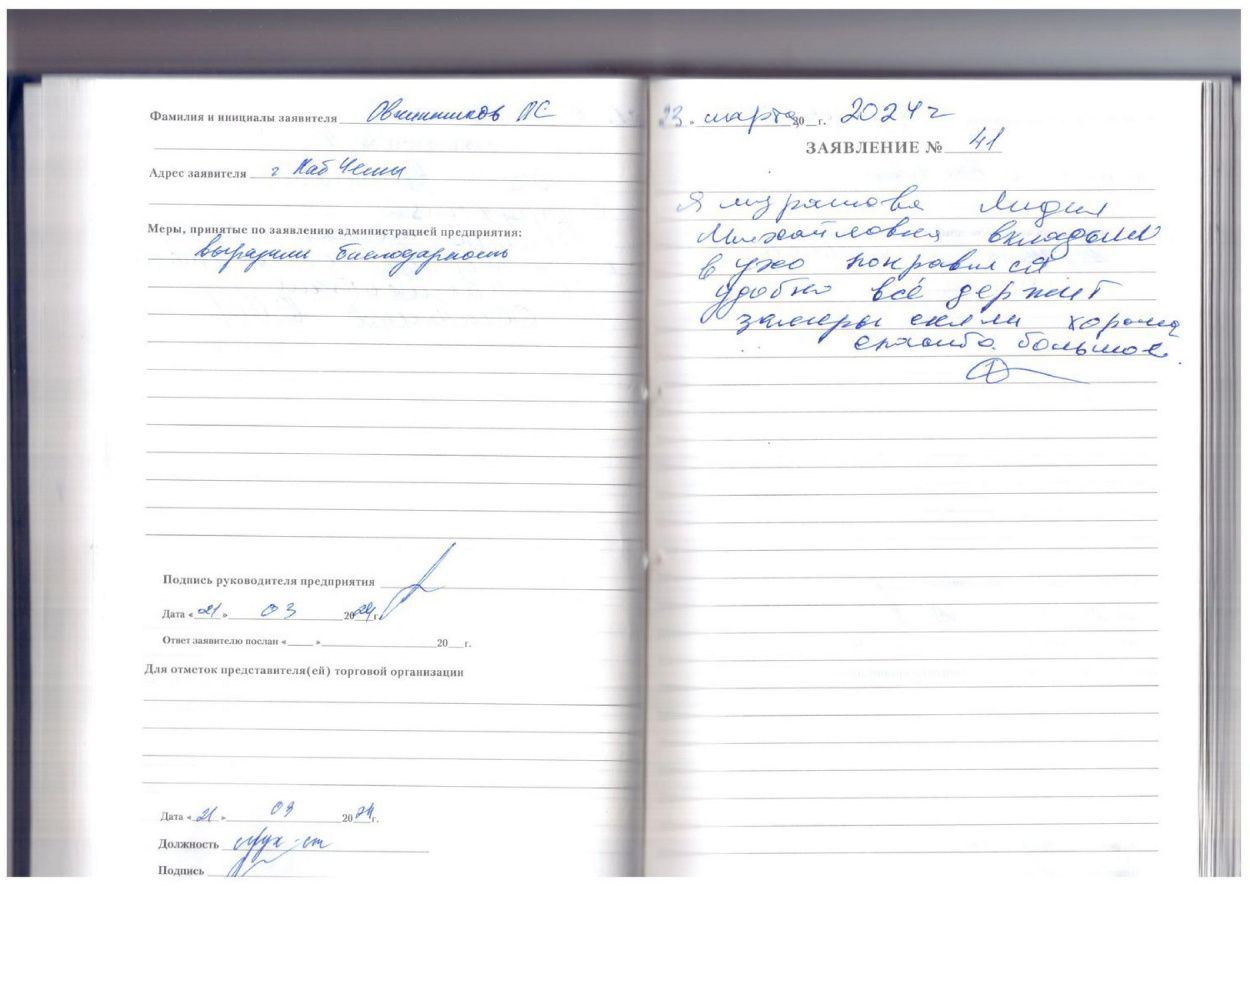 Фамилия и инициалы заявителя Овчинников ПС
Адрес заявителя г Наб Челны
Меры, принятые по заявлению администрацией предприятия:
выразили благодарность
Подпись руководителя предприятия
Дата « 21 » 03 20 24 г.
Ответ заявителю послан « » 20 г.
Для отметок представителя(ей) торговой организации
Дата « 21 » 03 20 24 г.
Должность
Подпись
23 » марта 20 г. 2024 г
ЗАЯВЛЕНИЕ № 41
Я Лидия
Михайловна вкладыши
в ухо понравился
удобно всё держит
замеры сняли хорошо
спасибо большое.